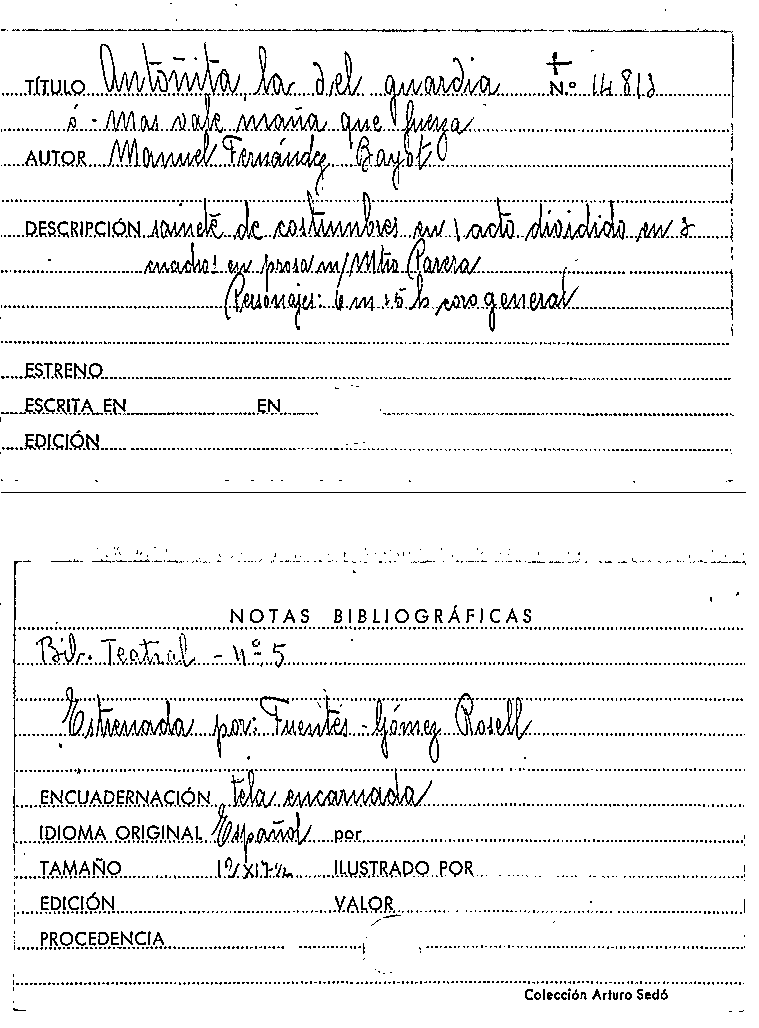 TÍTULO Antoñita, la del guardia Nº 14813
ó - Mas vale maña que fuerza
AUTOR Manuel Fernández Bayot
DESCRIPCIÓN sainete de costumbres en 1 acto dividido en 2
cuadros en prosa m/ Mtro Parera
Personajes: 6 m + 5 h coro general
ESTRENO
ESCRITA EN EN
EDICIÓN
NOTAS BIBLIOGRÁFICAS
Bib. Teatral - nº 5
Estrenada por: Fuentes - Gómez Rosell
ENCUADERNACIÓN tela encarnada
IDIOMA ORIGINAL Español por
TAMAÑO ILUSTRADO POR
EDICIÓN VALOR
PROCEDENCIA
Colección Arturo Sedó